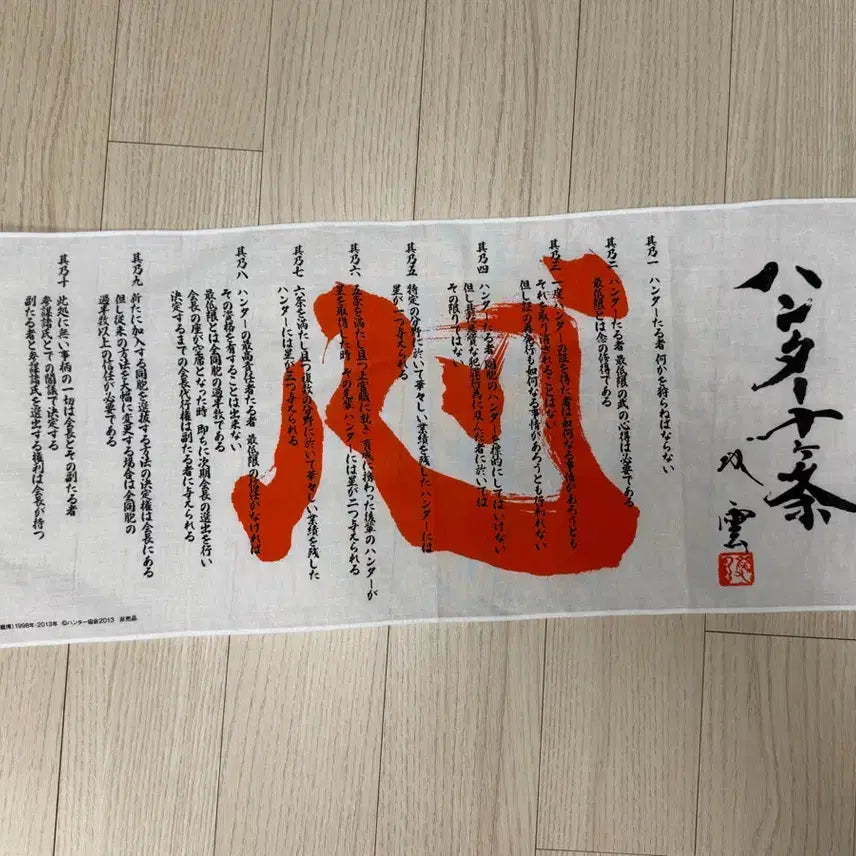 ハンター十ヶ条
雲
其乃一 ハンターたる者 何かを狩らねばならない
其乃二 ハンターたる者 最低限の武の心得は必要である
最低限とは念の修得である
其乃三 一度ハンターの証を得た者は如何なる事情があろうとも
それを取り消されることはない
但し証の再発行も如何なる事情があろうとも行われない
其乃四 ハンターたる者 同胞のハンターを標的にしてはいけない
但し甚だ悪質な犯罪行為に及んだ者に於いては
その限りではない
其乃五 特定の分野に於いて華々しい業績を残したハンターには
星が一つ与えられる
其乃六 五条を満たし且つ上官職に就き 育成に携わった後輩のハンターが
星を取得した時 その先輩ハンターには星が二つ与えられる
其乃七 六条を満たし且つ複数の分野に於いて華々しい業績を残した
ハンターには星が三つ与えられる
其乃八 ハンターの最高責任者たる者 最低限の信任がなければ
その資格を有することは出来ない
最低限とは全同胞の過半数である
会長の座が空席となった時 即ちに次期会長の選出を行い
決定するまでの会長代行権は副たる者に与えられる
其乃九 新たに加入する同胞を選抜する方法の決定権は会長にある
但し従来の方法を大幅に変更する場合は全同胞の
過半数以上の信任が必要である
其乃十 此処に無い事柄の一切は会長とその副たる者
参謀諸氏とでの閣議で決定する
副たる者と参謀諸氏を選出する権利は会長が持つ
1998年-2013年 ©ハンター協会2013 非売品